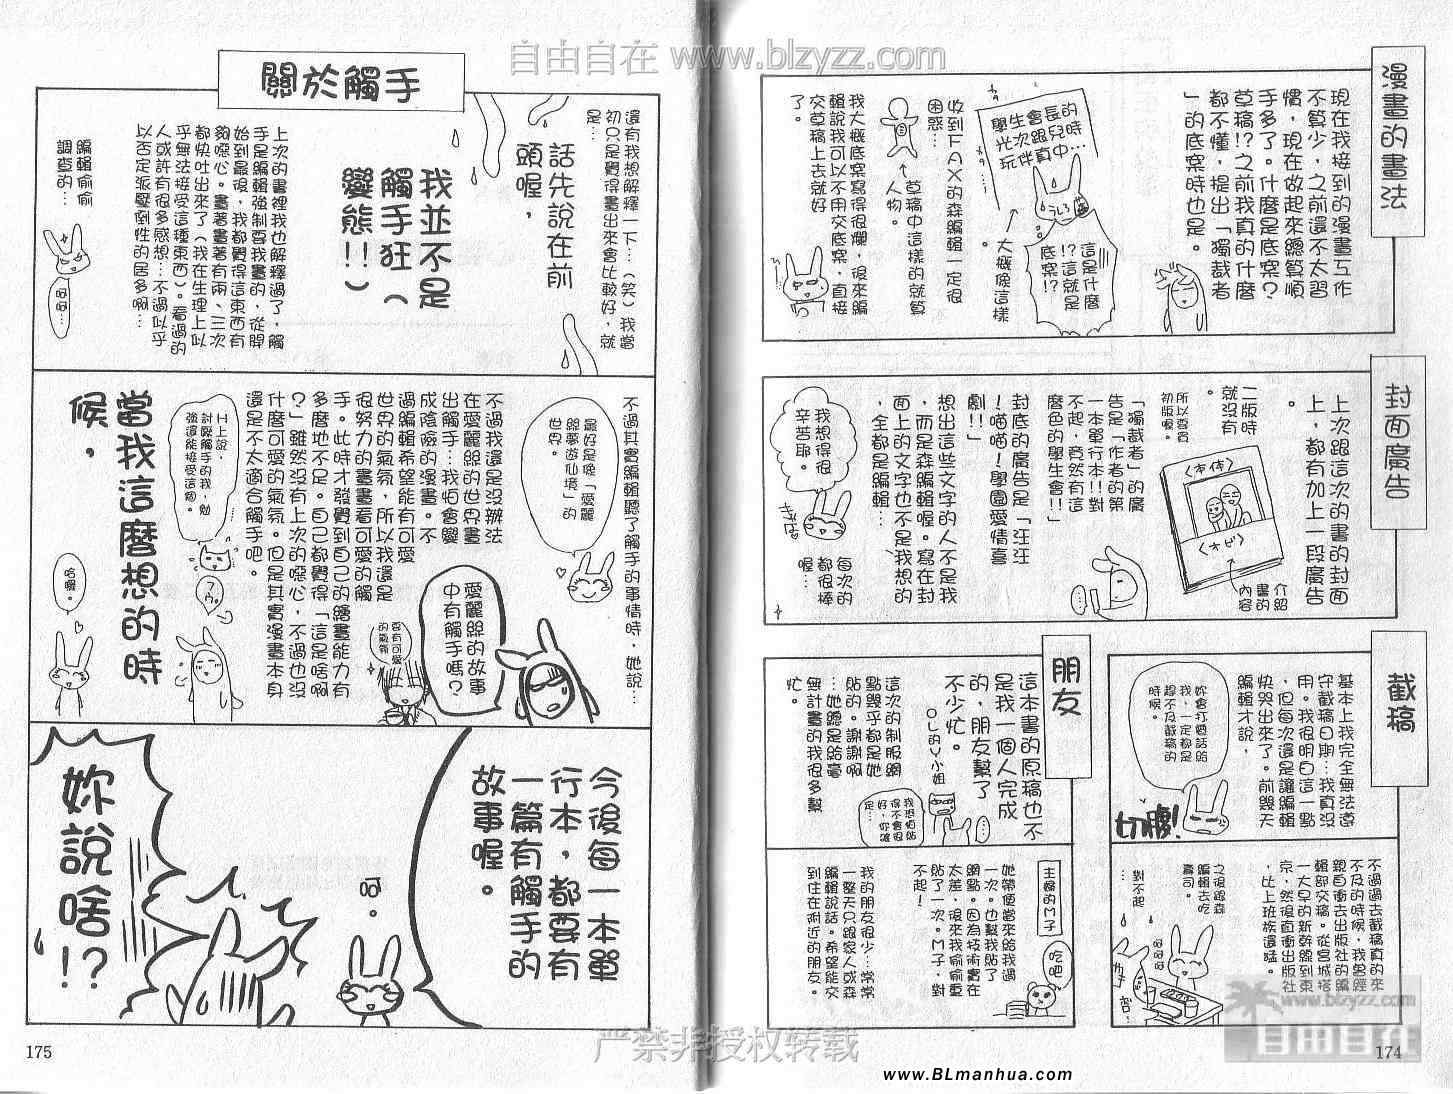 自由自在 www.blzyzz.com
漫畫的畫法
現在我接到的漫畫工作
不算少，之前還不太習
慣，現在做起來總算順
手多了。什麼是底案？
草稿!?之前我真的什麼
都不懂，提出「獨裁者
」的底案時也是。
長兒時
學生會跟的
光次玩伴真中…
這是什麼
!?這就是
底案!?
大概像這樣
。
收到FAX的森編輯一定很
困惑…
草稿中這樣的就算
人物。
我大概底案寫得很爛，後來編
輯說我可以不用交底案，直接
交草稿上去就好
了。
封面廣告
上次跟這次的書的封面
上，都有加上一段廣告
。
二版時
就沒有
。
所以要買
初版喔。
〈本体〉
〈オビ〉
介紹
書的
內容
「獨裁者」的廣
告是「作者的第
一本單行本!!對
不起，竟然有這
麼色的學生會!!」
封底的廣告是「汪汪
！喵喵！學園愛情喜
劇!!」
想出這些文字的人不是我
，而是森編輯喔。寫在封
面上的文字也不是我想的
，全都是編輯…
我想得很
辛苦耶。
每次的
都很棒
喔…
截稿
基本上我完全無法遵
守截稿日期…我真沒
用。我很明白這一點
，但每次還是讓編輯
快哭出來了。前幾天
編輯才說，
妳會打電話給
我，一定都是
趕不及截稿的
時候。
切腹!
不過過去截稿真的來
不及的時候，我曾經
親自衝去出版社的編
輯部交稿。從宮城搭
一大早的新幹線到東
京，然後直衝出版社
，比上班族還猛。
之後跟森
編輯去吃
壽司。
對不起
…
朋友
這本書的原稿也不
是我一個人完成
的，朋友幫了
不少忙。
OL的Y小姐
這次的制服網
點幾乎都是她
貼的。謝謝啊
…她總是給毫
無計畫的我很多幫
忙。
我恐怕貼
得不會很
好，你確
定…
主婦的M子
她帶便當來給我過
一次。也幫我貼了
網點。因為技術實在
太差，後來我偷偷重
貼了一次。M子，對
不起！
吃吧
我的朋友很少…常常
一整天只跟家人或森
編輯說話。希望能交
到住在附近的朋友。
174
關於觸手
還有我想解釋一下…（笑）我當
初只是覺得畫出來會比較好，就
是…
話先說在前
頭喔，
我並不是
觸手狂（
變態!!）
上次的書裡我也解釋過了，觸
手是編輯強制要我畫的，從開
始到最後，我都覺得這東西有
夠噁心。畫著畫著有兩、三次
都快吐出來了（我在生理上似
乎無法接受這種東西）。看過的
人或許有很多感想…不過似乎
以否定派壓倒性的居多啊…
編輯偷偷
調查的…
呵呵…
不過其實編輯聽了觸手的事情時，她說…
最好是像「愛麗
絲夢遊仙境」的
世界。
不過我還是沒辦法
在愛麗絲的世界畫
出觸手…我怕會變
成陰險的漫畫。不
過編輯希望能有可愛
世界的氣氛，所以我還是
很努力的畫畫看可愛的觸
手。此時才發覺到自己的繪畫能力有
多麼地不足。自己都覺得「這是啥啊
？」雖然沒有上次的噁心，不過也沒
什麼可愛的氣氛。但是其實漫畫本身
還是不太適合觸手吧。
愛麗絲的故事
中有觸手嗎？
要有可愛
的氣氛
H上說，
討厭觸手的我，勉
強還能接受這個。
哈囉。
當我這麼想的時
候，
今後每一本單
行本，都要有
一篇有觸手的
故事喔。
呵。
妳說啥!?
175
严禁非授权转载
www.BLmanhua.com
www.blzyzz.com
自由自在